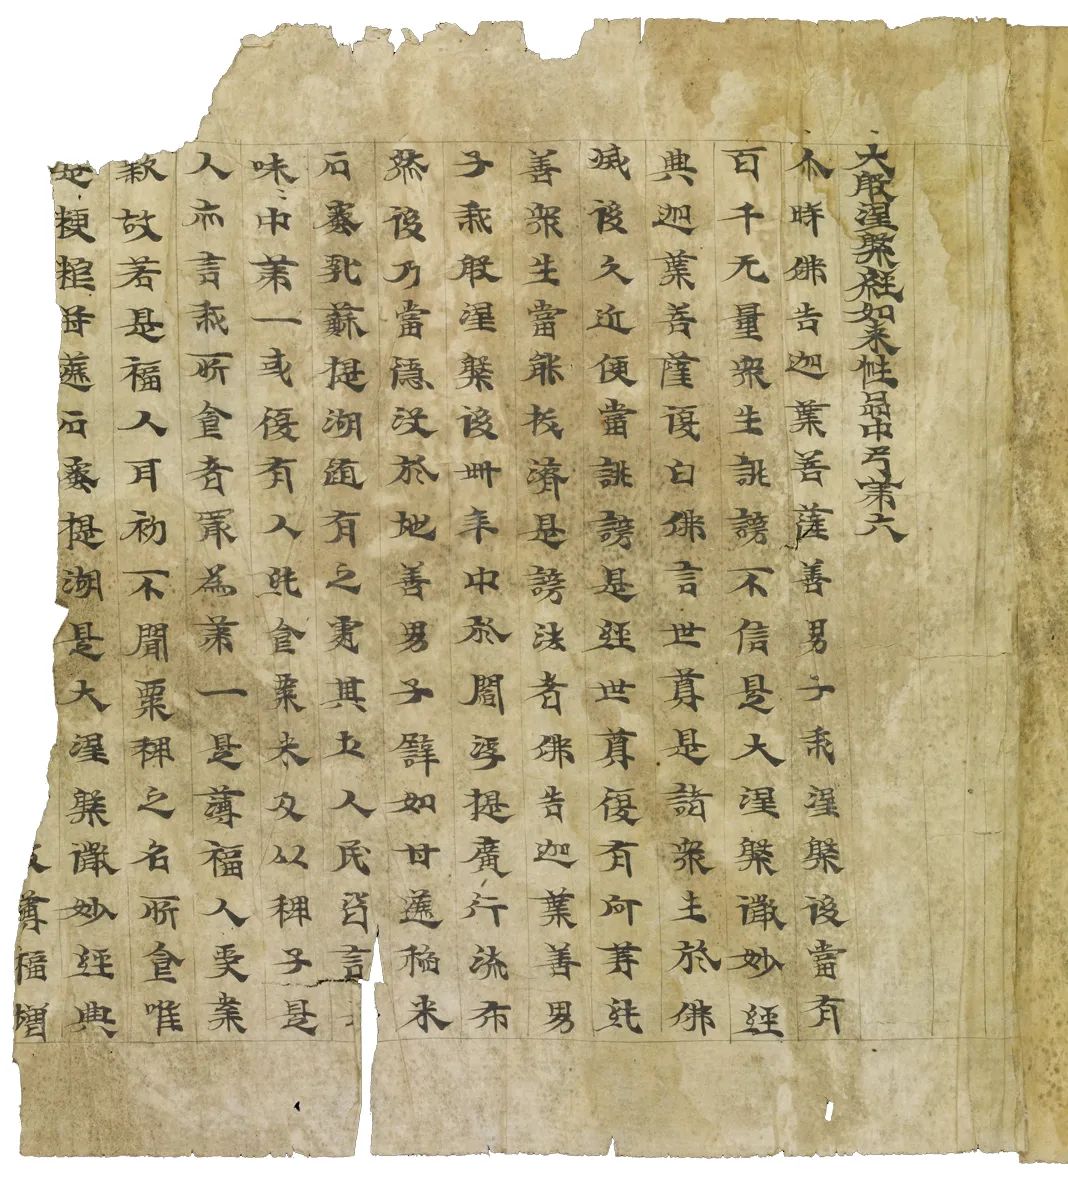 大般涅槃經如来性品中弓第六
尒時佛告迦葉菩薩善男子我涅槃後當有
百千无量衆生誹謗不信是大涅槃微妙經
典迦葉菩薩復白佛言世尊是諸衆生於佛
滅後久近便當誹謗是經世尊復有何等純
善衆生當能拔濟是謗法者佛告迦葉善男
子我般涅槃後卌年中於閻浮提廣行流布
然後乃當隱没於地善男子譬如甘蔗稻米
石蜜乳蘇提湖隨有之處其土人民皆言
味中第一或復有人純食粟米及以稗子是
人亦言我所食者冣為第一是薄福人受業
報故若是福人耳初不聞粟稗之名所食唯
是粳粮甘蔗石蜜提湖是大涅槃微妙經典
薄福增